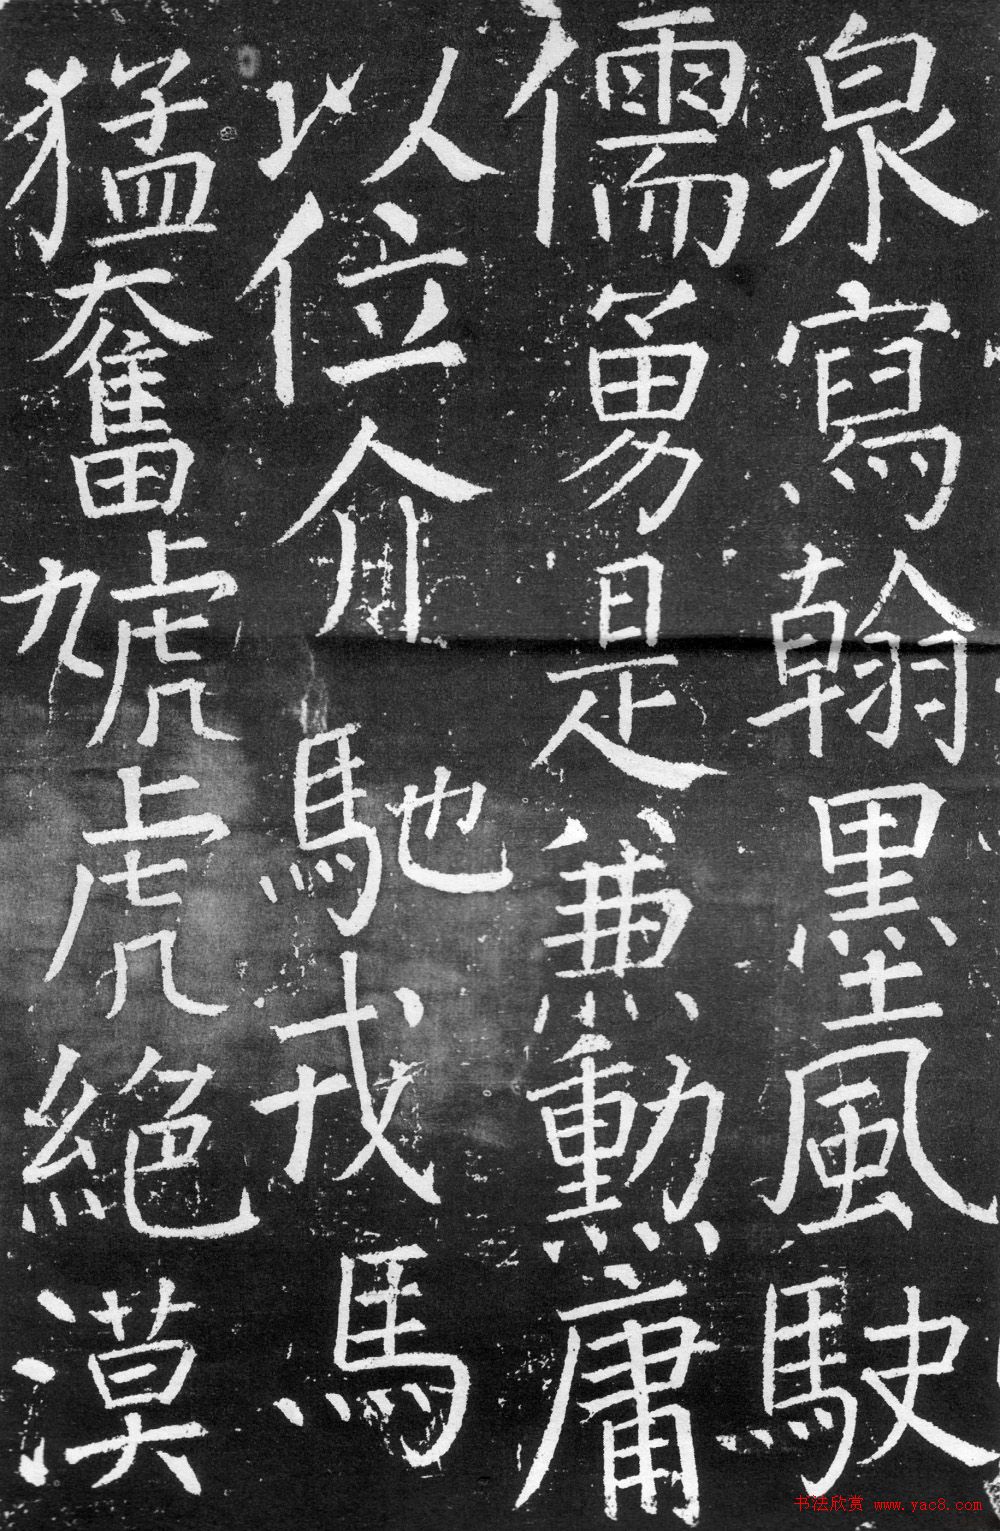 泉寫翰墨風駛
儒勇是兼勳庸
以位介馳戎馬
猛奮虓虎絕漠
书法欣赏 www.yac8.com